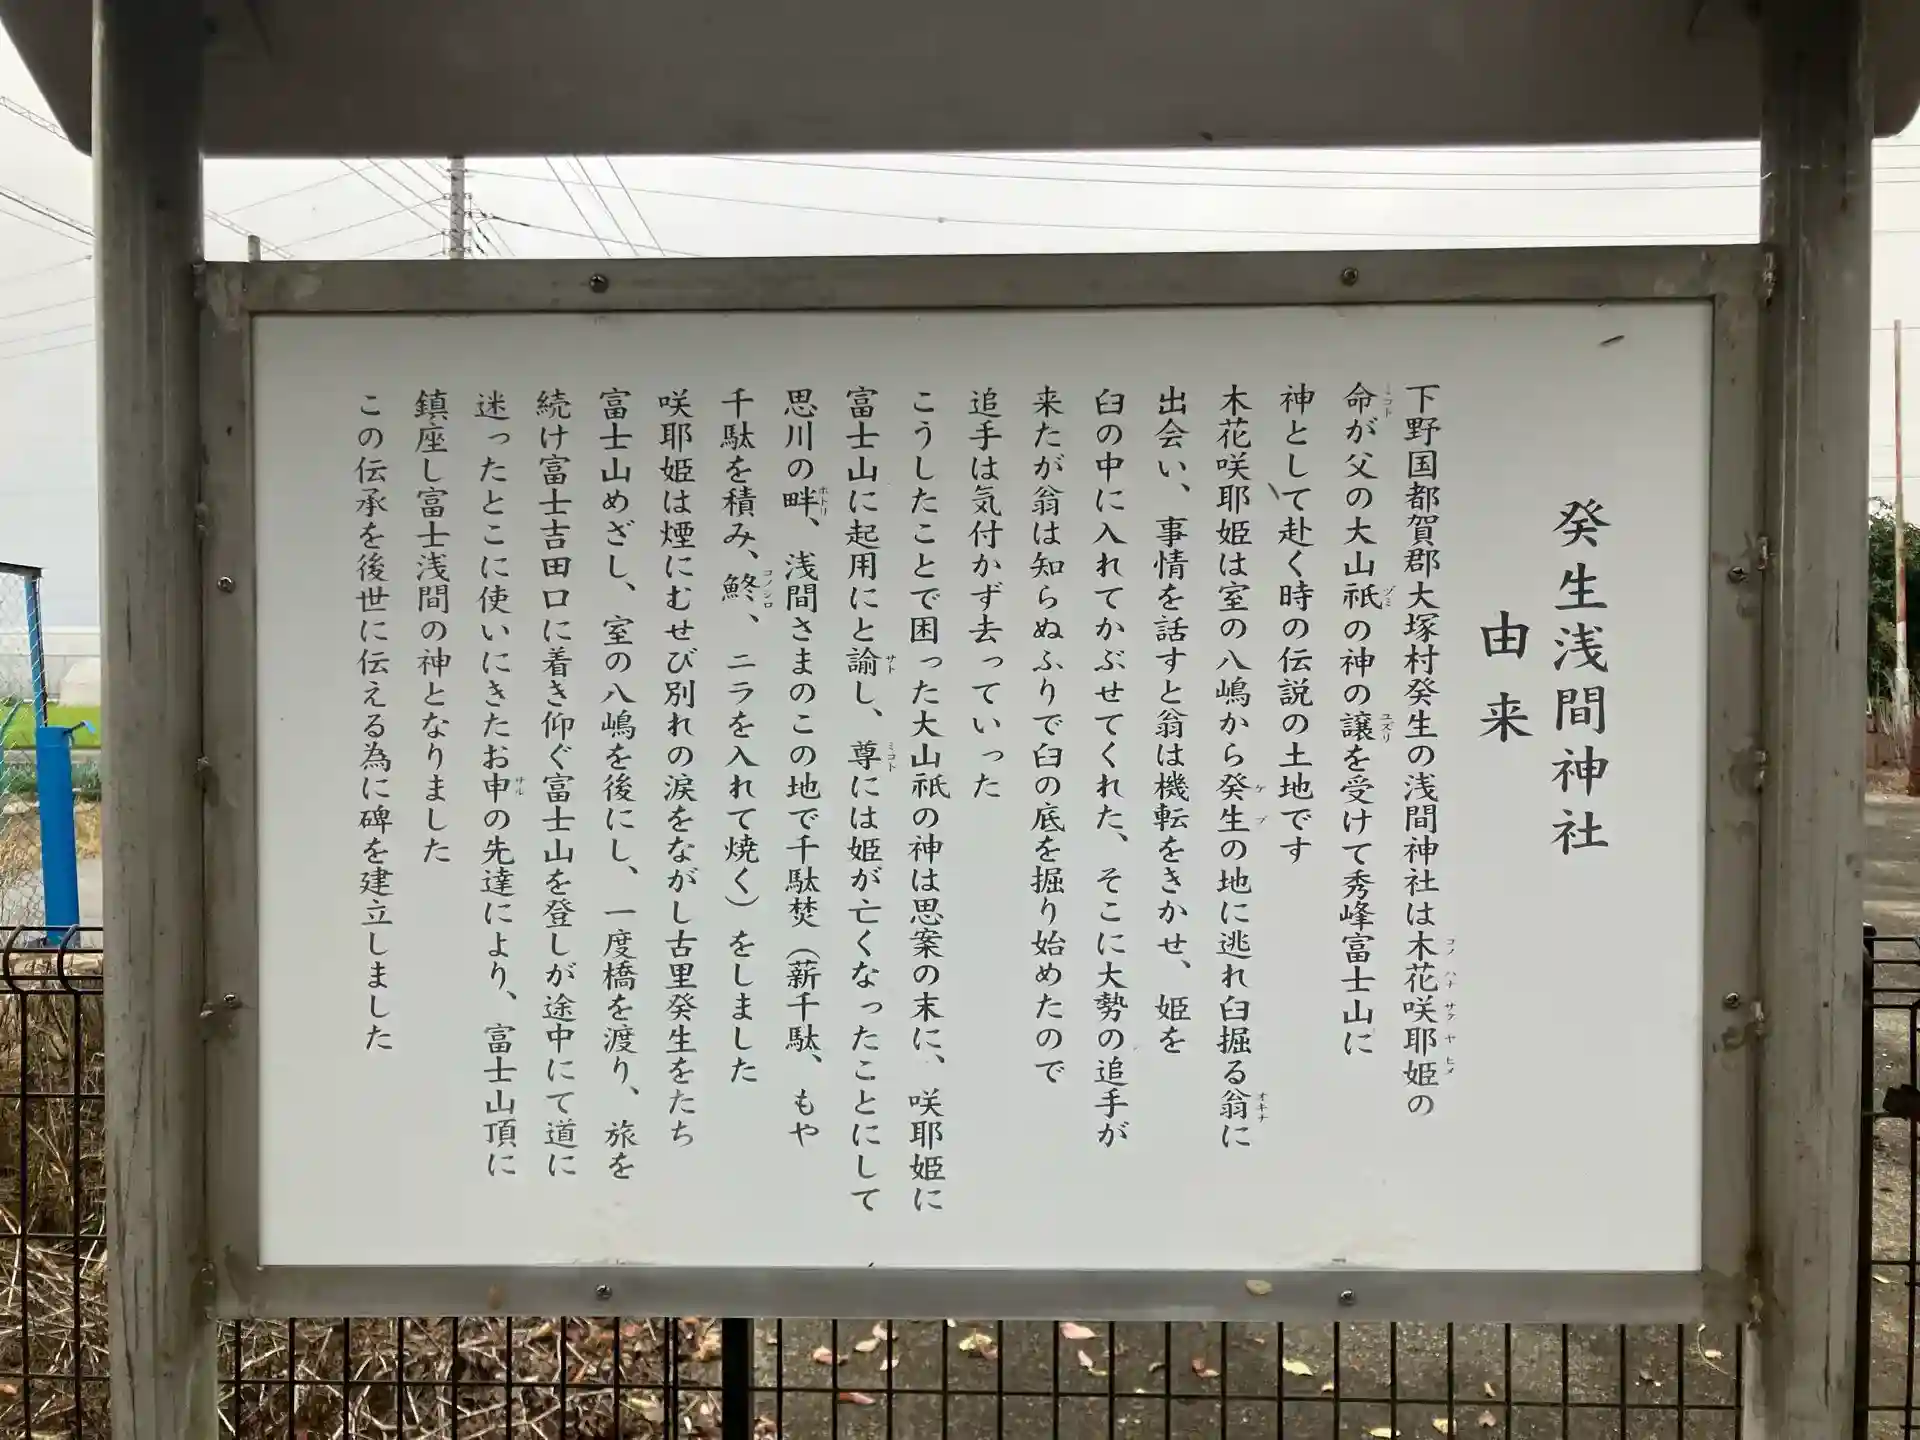 癸生浅間神社
由来
下野国都賀郡大塚村癸生の浅間神社は木花咲耶姫の
命が父の大山祇の神の譲を受けて秀峰富士山に
神として赴く時の伝説の土地です
木花咲耶姫は室の八嶋から癸生の地に逃れ臼掘る翁に
出会い、事情を話すと翁は機転をきかせ、姫を
臼の中に入れてかぶせてくれた、そこに大勢の追手が
来たが翁は知らぬふりで臼の底を掘り始めたので
追手は気付かず去っていった
こうしたことで困った大山祇の神は思案の末に、咲耶姫に
富士山に起用にと諭し、尊には姫が亡くなったことにして
思川の畔、浅間さまのこの地で千駄焚（薪千駄、もや
千駄を積み、鮗、ニラを入れて焼く）をしました
咲耶姫は煙にむせび別れの涙をながし古里癸生をたち
富士山めざし、室の八嶋を後にし、一度橋を渡り、旅を
続け富士吉田口に着き仰ぐ富士山を登しが途中にて道に
迷ったとこに使いにきたお申の先達により、富士山頂に
鎮座し富士浅間の神となりました
この伝承を後世に伝える為に碑を建立しました